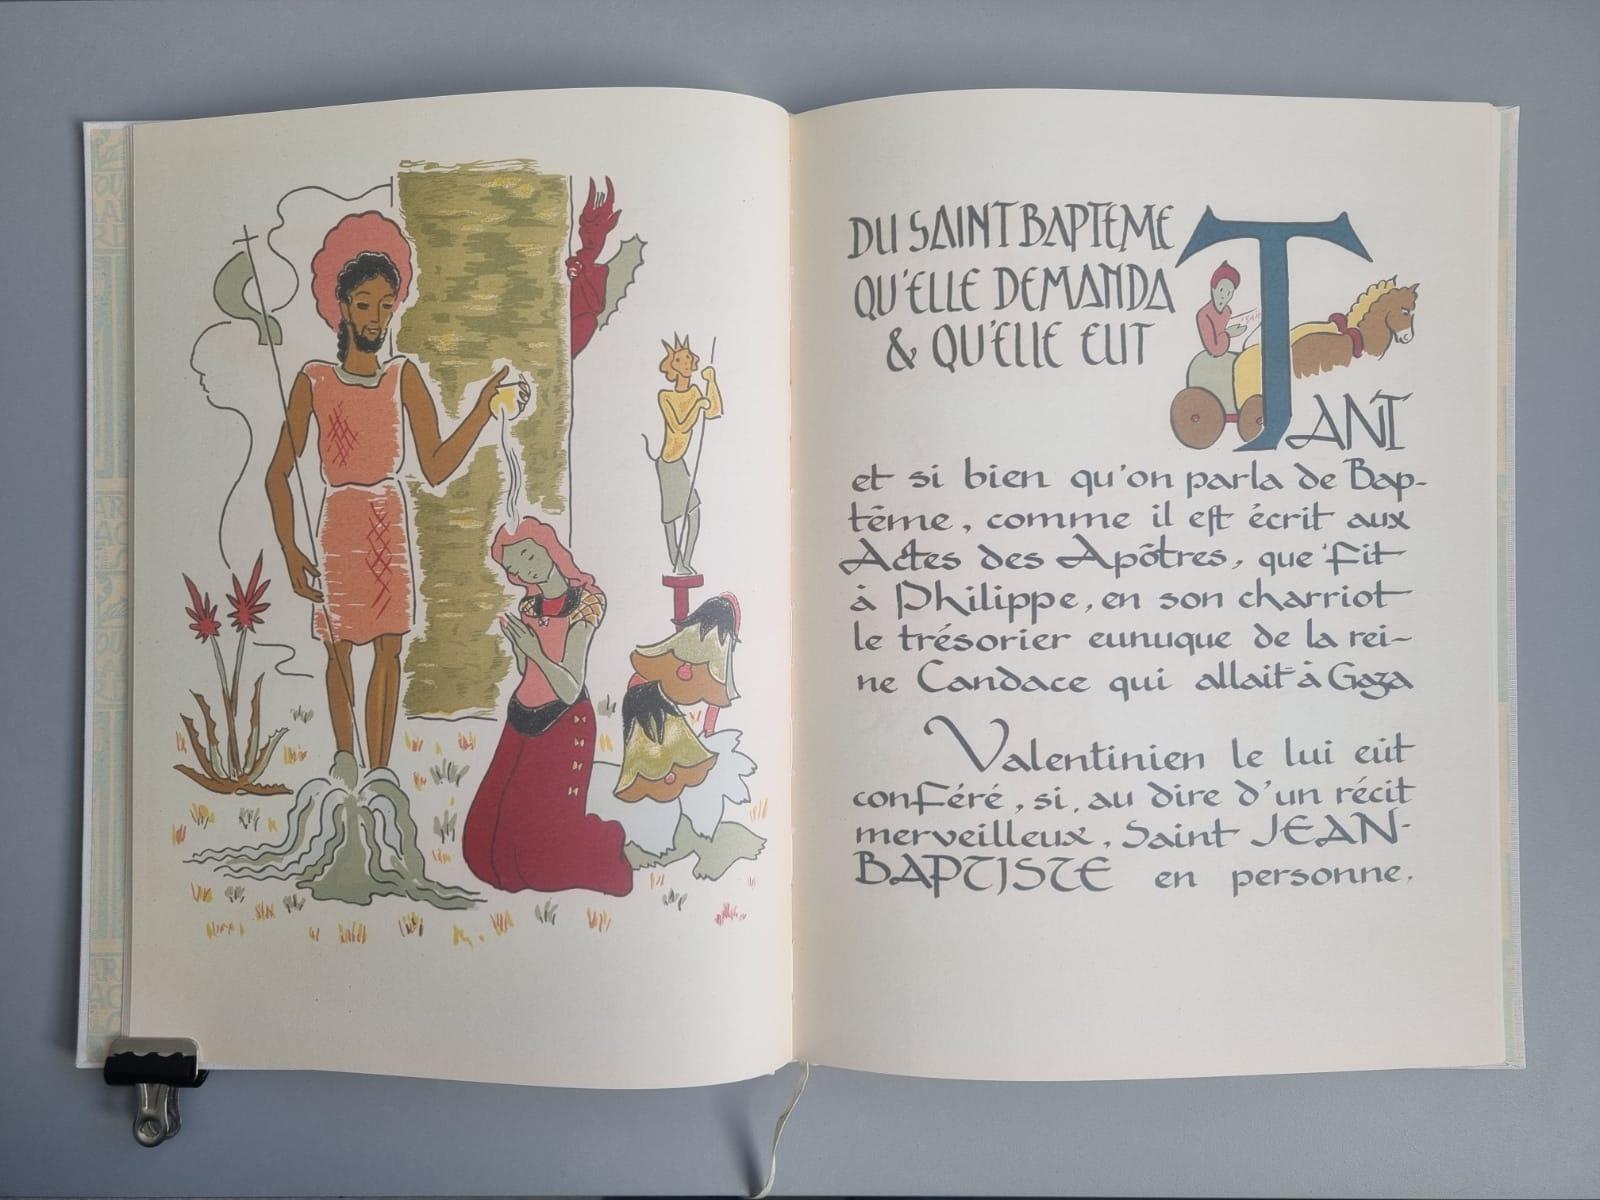 DU SAINT BAPTEME
QU'ELLE DEMANDA
& QU'ELLE EUT
TANT
et si bien qu'on parla de Bap-
tême, comme il est écrit aux
Actes des Apôtres, que fit
à Philippe, en son charriot
le trésorier eunuque de la rei-
ne Candace qui allait à Gaza
Valentinien le lui eût
conféré, si, au dire d'un récit
merveilleux, Saint JEAN-
BAPTISTE en personne.